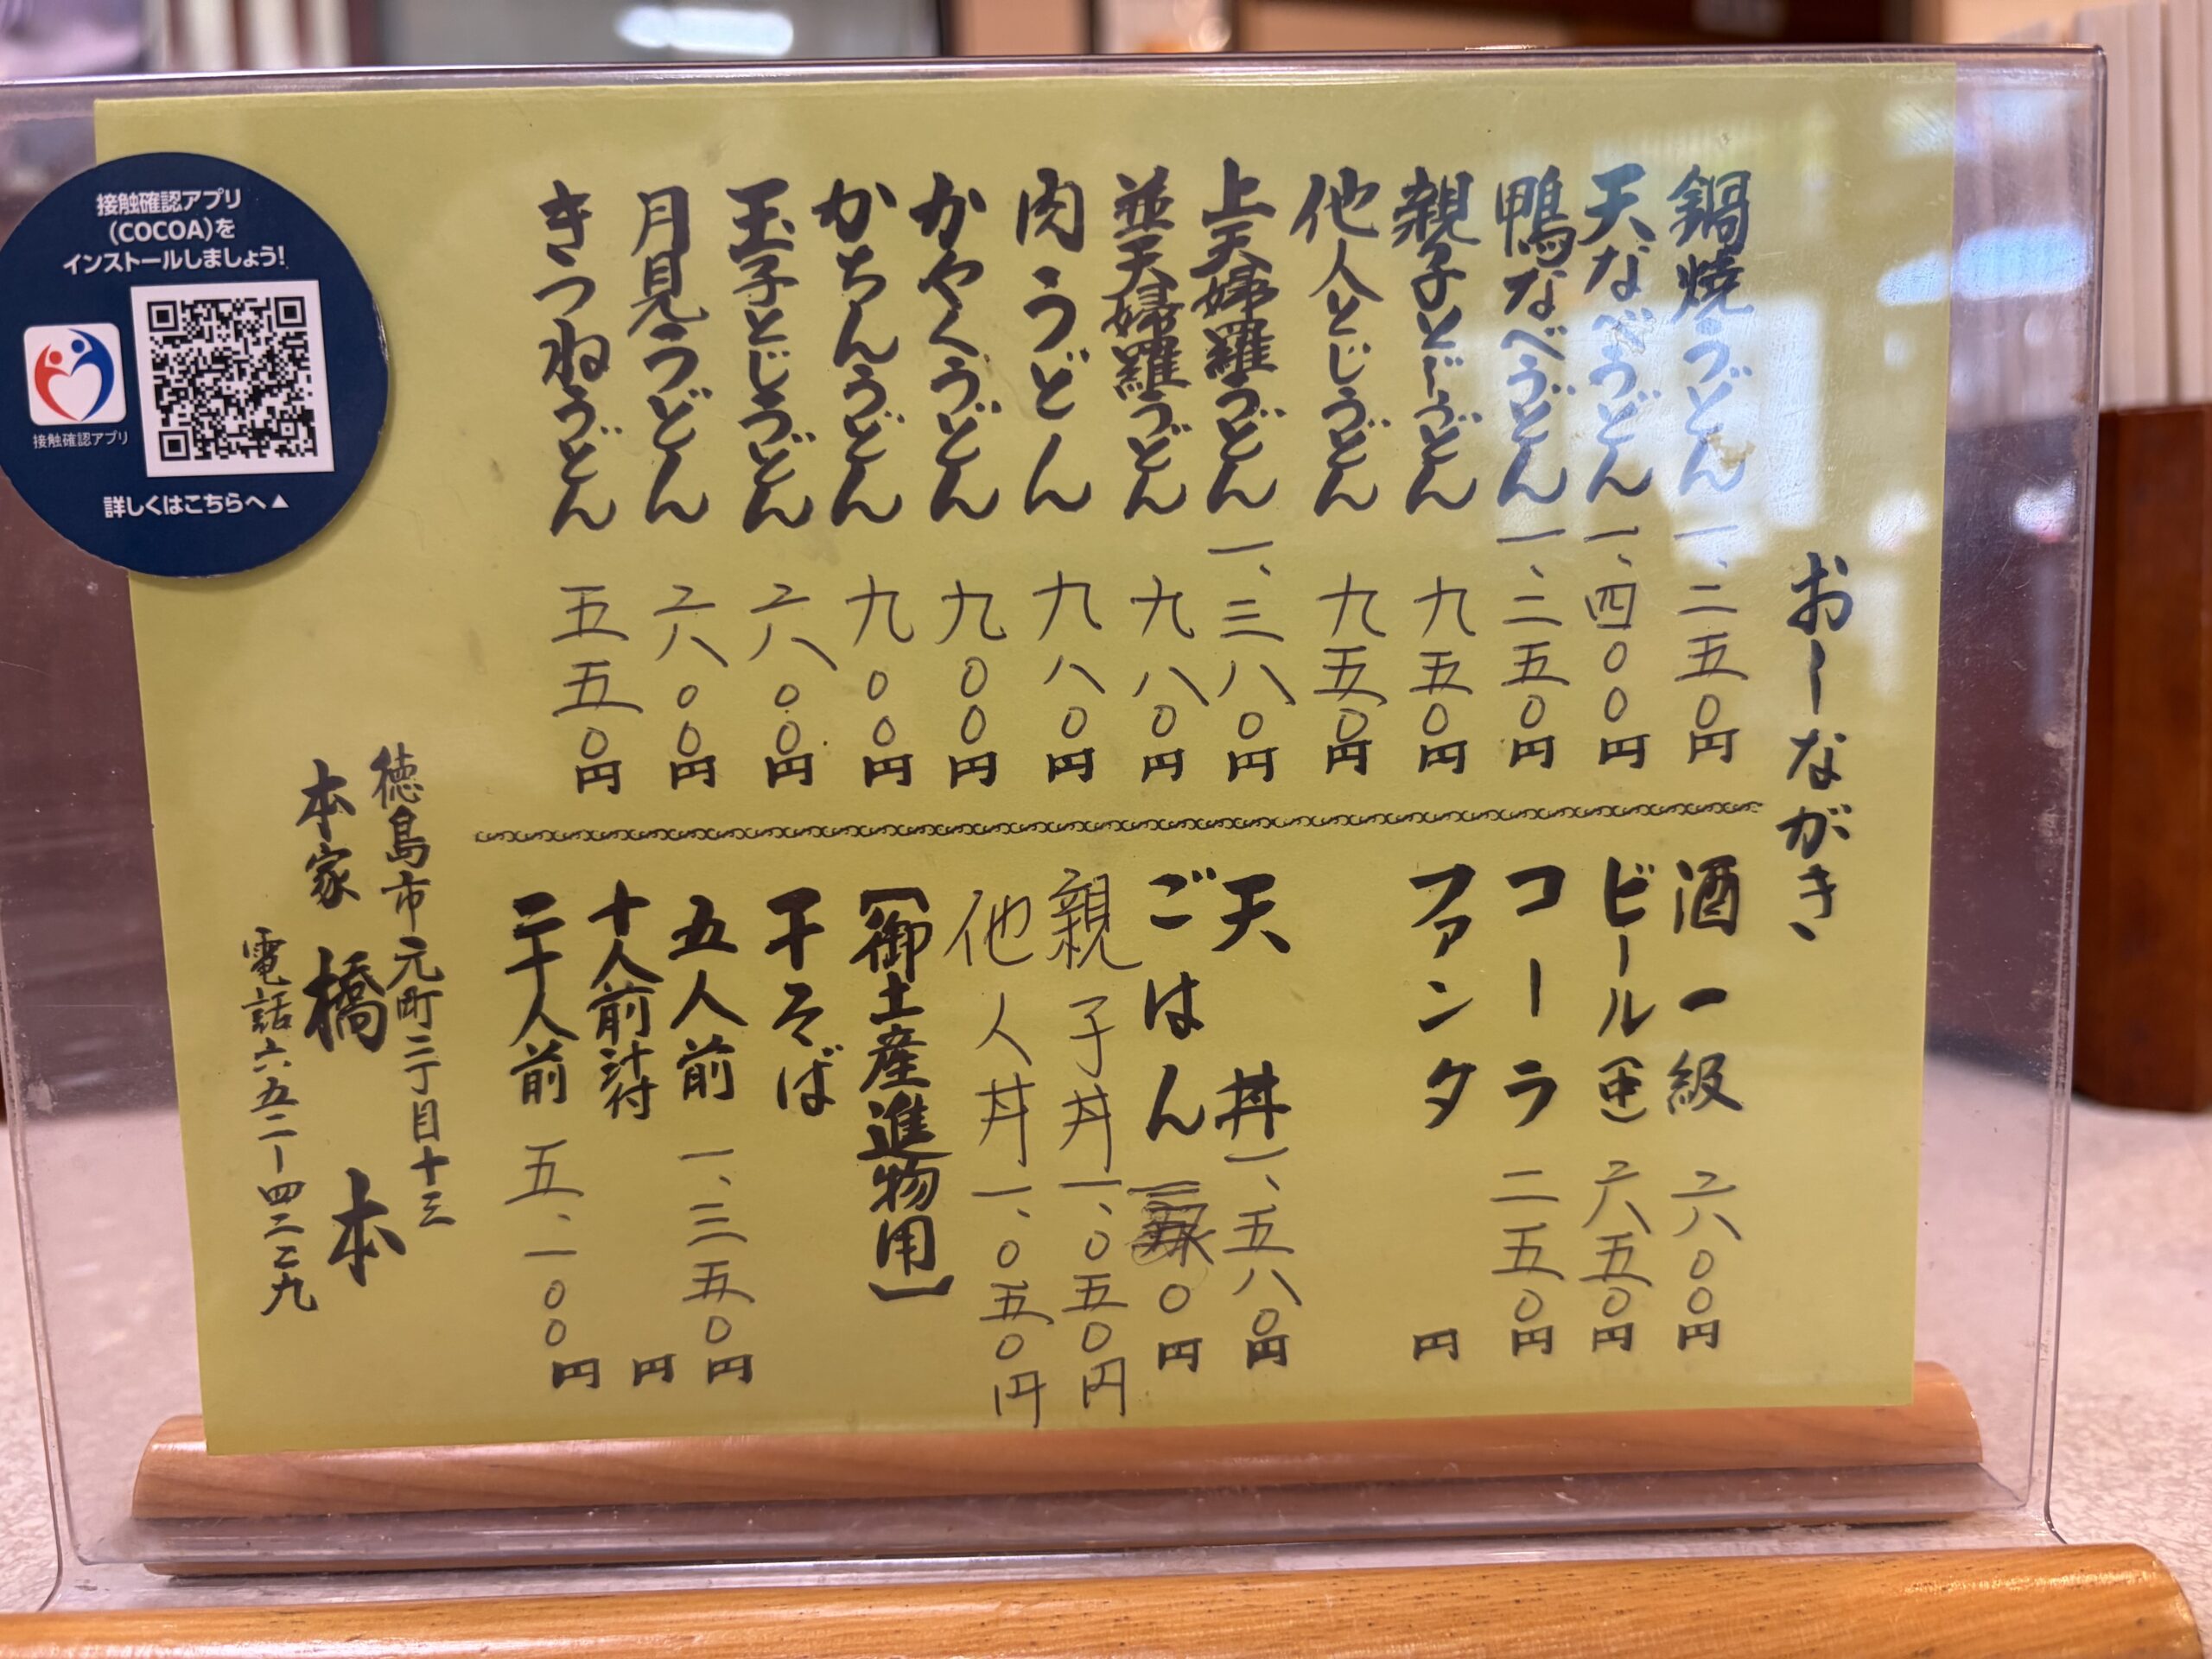 おしながき
鍋焼うどん 一、二五〇円
天なべうどん 一、四〇〇円
鴨なべうどん 一、二五〇円
親子とじうどん 九五〇円
他人とじうどん 九五〇円
上天婦羅うどん 一、三八〇円
並天婦羅うどん 九八〇円
肉うどん 九八〇円
かやくうどん 九〇〇円
かちんうどん 九〇〇円
玉子とじうどん 六〇〇円
月見うどん 六〇〇円
きつねうどん 五五〇円
酒一級 六〇〇円
ビール(中) 六五〇円
コーラ 二五〇円
ファンタ 円
天丼 一、五八〇円
ごはん 〇円
親子丼 一、〇五〇円
他人丼 一、〇五〇円
【御土産進物用】
干そば
五人前 一、三五〇円
十人前 汁付 円
二十人前 五、一〇〇円
徳島市元町二丁目十三
本家 橋本
電話 六五二ー四二二九
接触確認アプリ
(COCOA)を
インストールしましょう!
接触確認アプリ
詳しくはこちらへ▲